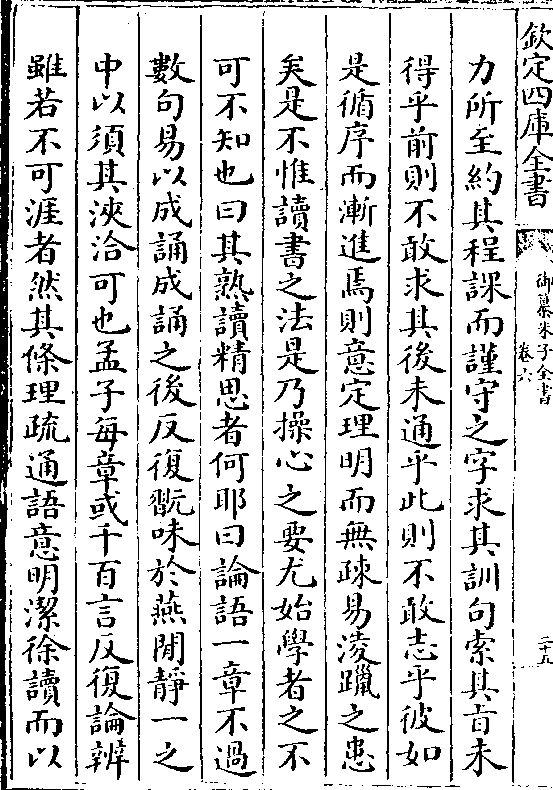 欽定四庫全書
御纂朱子全書
卷六
二十五
力所至約其程課而謹守之字求其訓句索其㫖未
得乎前則不敢求其後未通乎此則不敢志乎彼如
是循序而漸進焉則意定理明而無疎易淩躐之患
矣是不惟讀書之法是乃操心之要尤始學者之不
可不知也曰其熟讀精思者何耶曰論語一章不過
數句易以成誦成誦之後反復翫味於燕閒靜一之
中以須其浹洽可也孟子每章或千百言反復論辨
雖若不可涯者然其條理疏通語意明潔徐讀而以